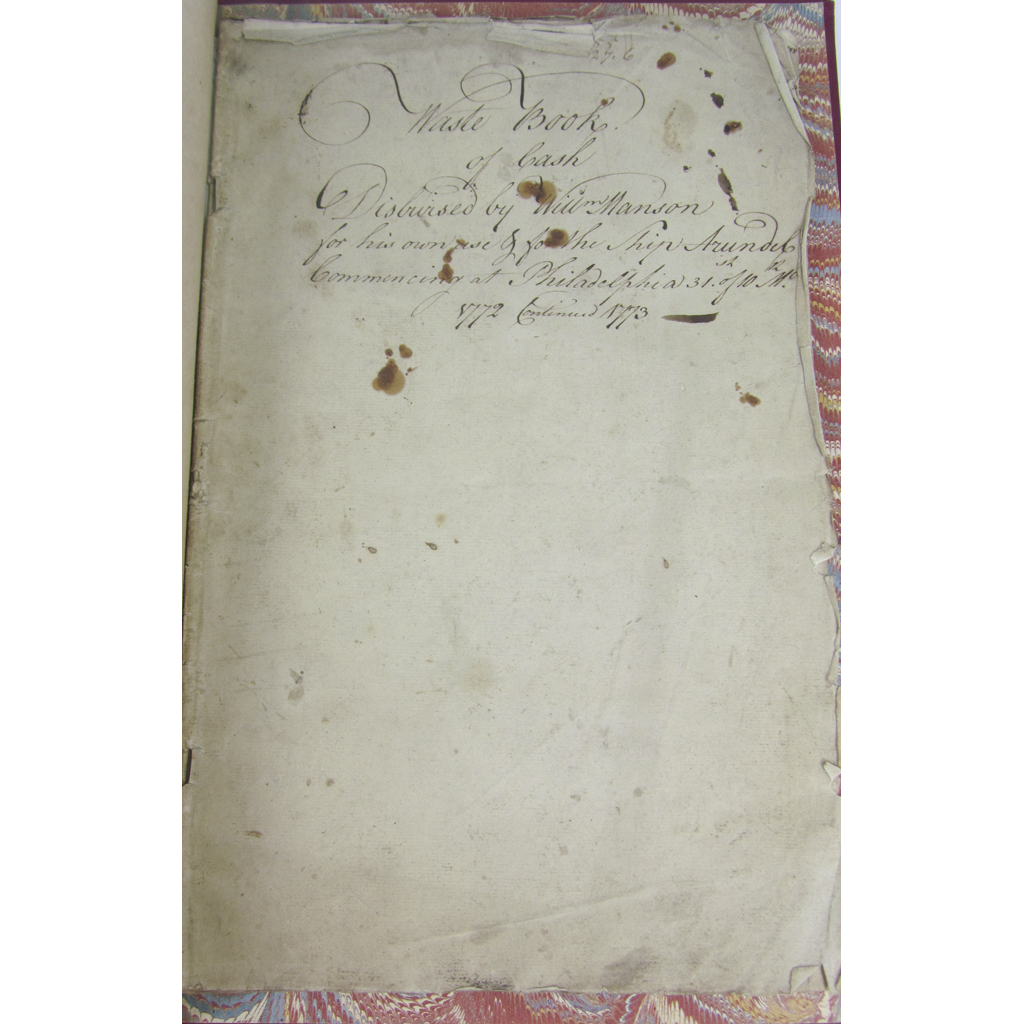 Waste Book
of Cash
Disbursed by Willm Manson
for his own use & for the Ship Arundel
Commencing at Philadelphia 31st of 10th Mo
1772 Continued 1773